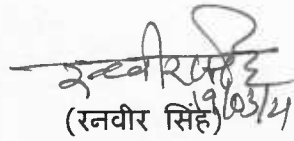 रनवीर सिंह
19/03/21
(रनवीर सिंह)